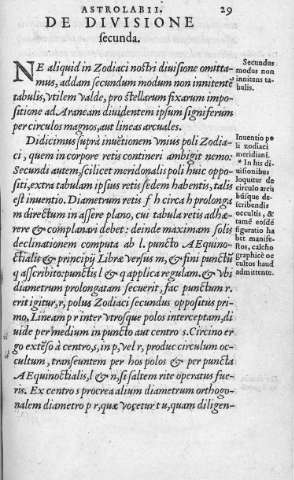 ASTROLABII. 29
DE DIVISIONE
secunda.
NE aliquid in Zodiaci nostri divisione omitta-
mus, addam secundum modum non innitentē
tabulis, vtilem valde, pro stellarum fixarum impo-
sitione ad Araneam dividentem ipsum signiferum
per circulos magnos, aut lineas arcuales.
Didicimus suprà inuētionem vnius poli Zodia-
ci, quem in corpore retis contineri ambigit nemo:
Secundi autem, scilicet meridonalis poli huic oppo-
siti, extra tabulam ipsius retis sedem habentis, talis
est inuentio. Diametrum retis f h circa h prolonga
m directum in assere plano, cui tabula retis adhæ-
rere & complanari debet: deinde maximam solis
declinationem computa ab l. puncto AEquino-
ctialis & principij Libræ versus m, & fini punctū
q ascribito: punctis l & q applica regulam, & vbi
diametrum prolongatam secuerit, fac punctum r.
erit igitur, r, polus Zodiaci secundus oppositus pri-
mo, Lineam p r inter vtrosque polos interceptam, di
uide per medium in puncto aut centro s. Circino er
go extēso à centro, s, in p, vel r, produc circulum oc-
cultum, transeuntem per hos polos & per puncta
AEquinoctialis, l & n. si saltem rite operatus fue-
ris. Ex centro s procrea alium diametrum orthogo-
nalem diametro p r, quæ vocetur t u, quam diligen-
Secundus
modus non
innitens ta
bulis.
Inuentio po
li zodiaci
meridiani.
In his di
uisionibus
loquitur de
circulo arcu
busque de-
scribendis
occultis, &
tamē osten
figuratio ha
bet manife-
stos, calcho
graphicè oc
cultos haud
admittente.